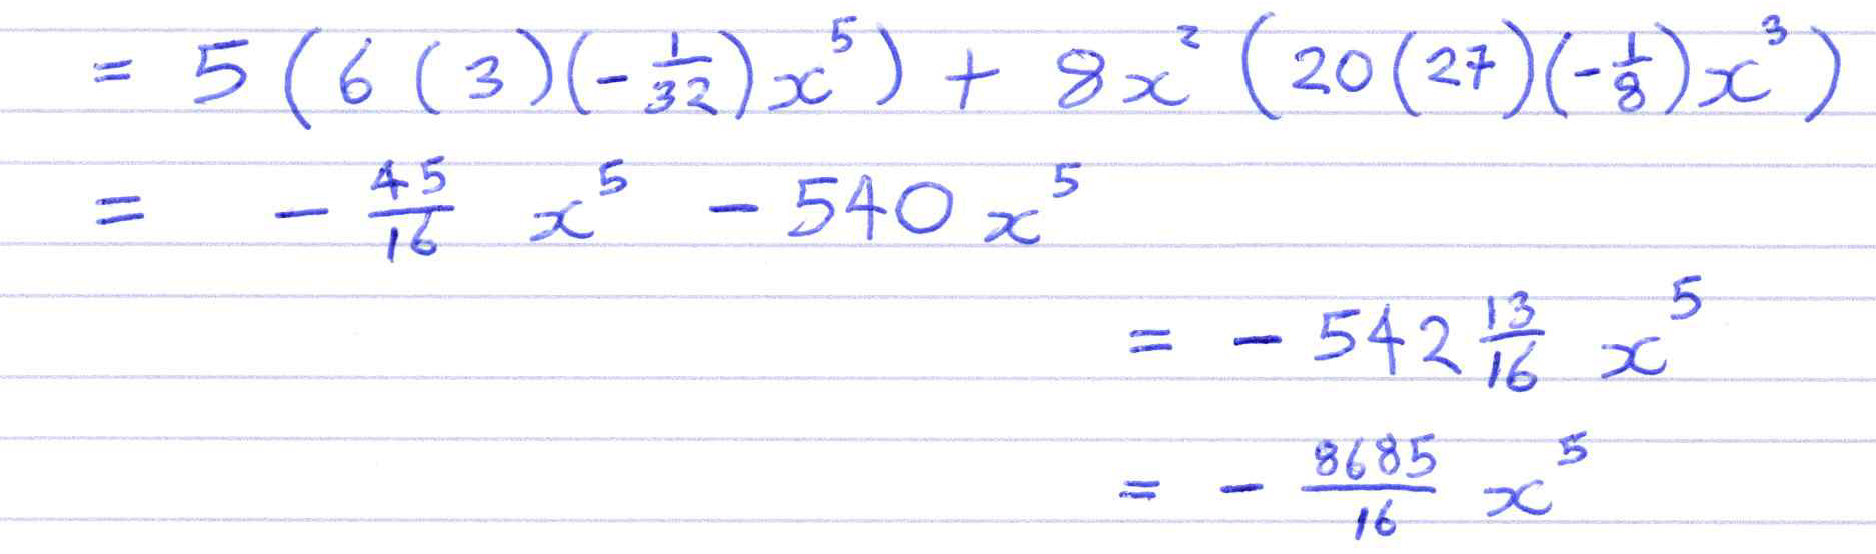 = 5 ( 6 ( 3 ) ( - 1/32 ) x^5 ) + 8x^2 ( 20 ( 27 ) ( - 1/8 ) x^3 )
= - 45/16 x^5 - 540 x^5
= - 542 13/16 x^5
= - 8685/16 x^5